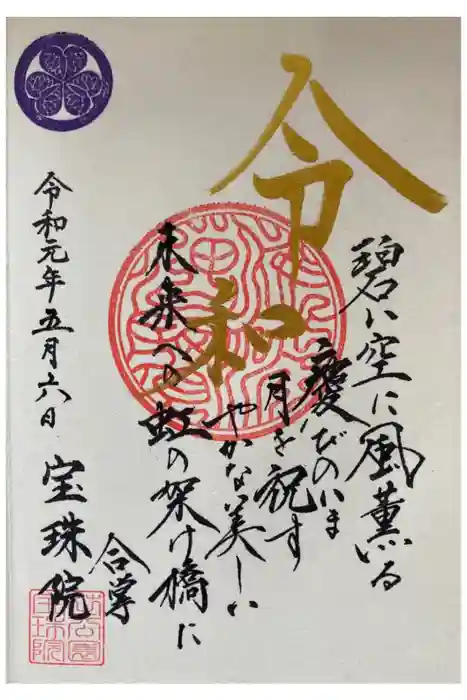 令和
碧い空に風薫る
慶びのいま
月を祝す
やかな美しい
未来への虹の架け橋に
合掌
令和元年五月六日
宝珠院